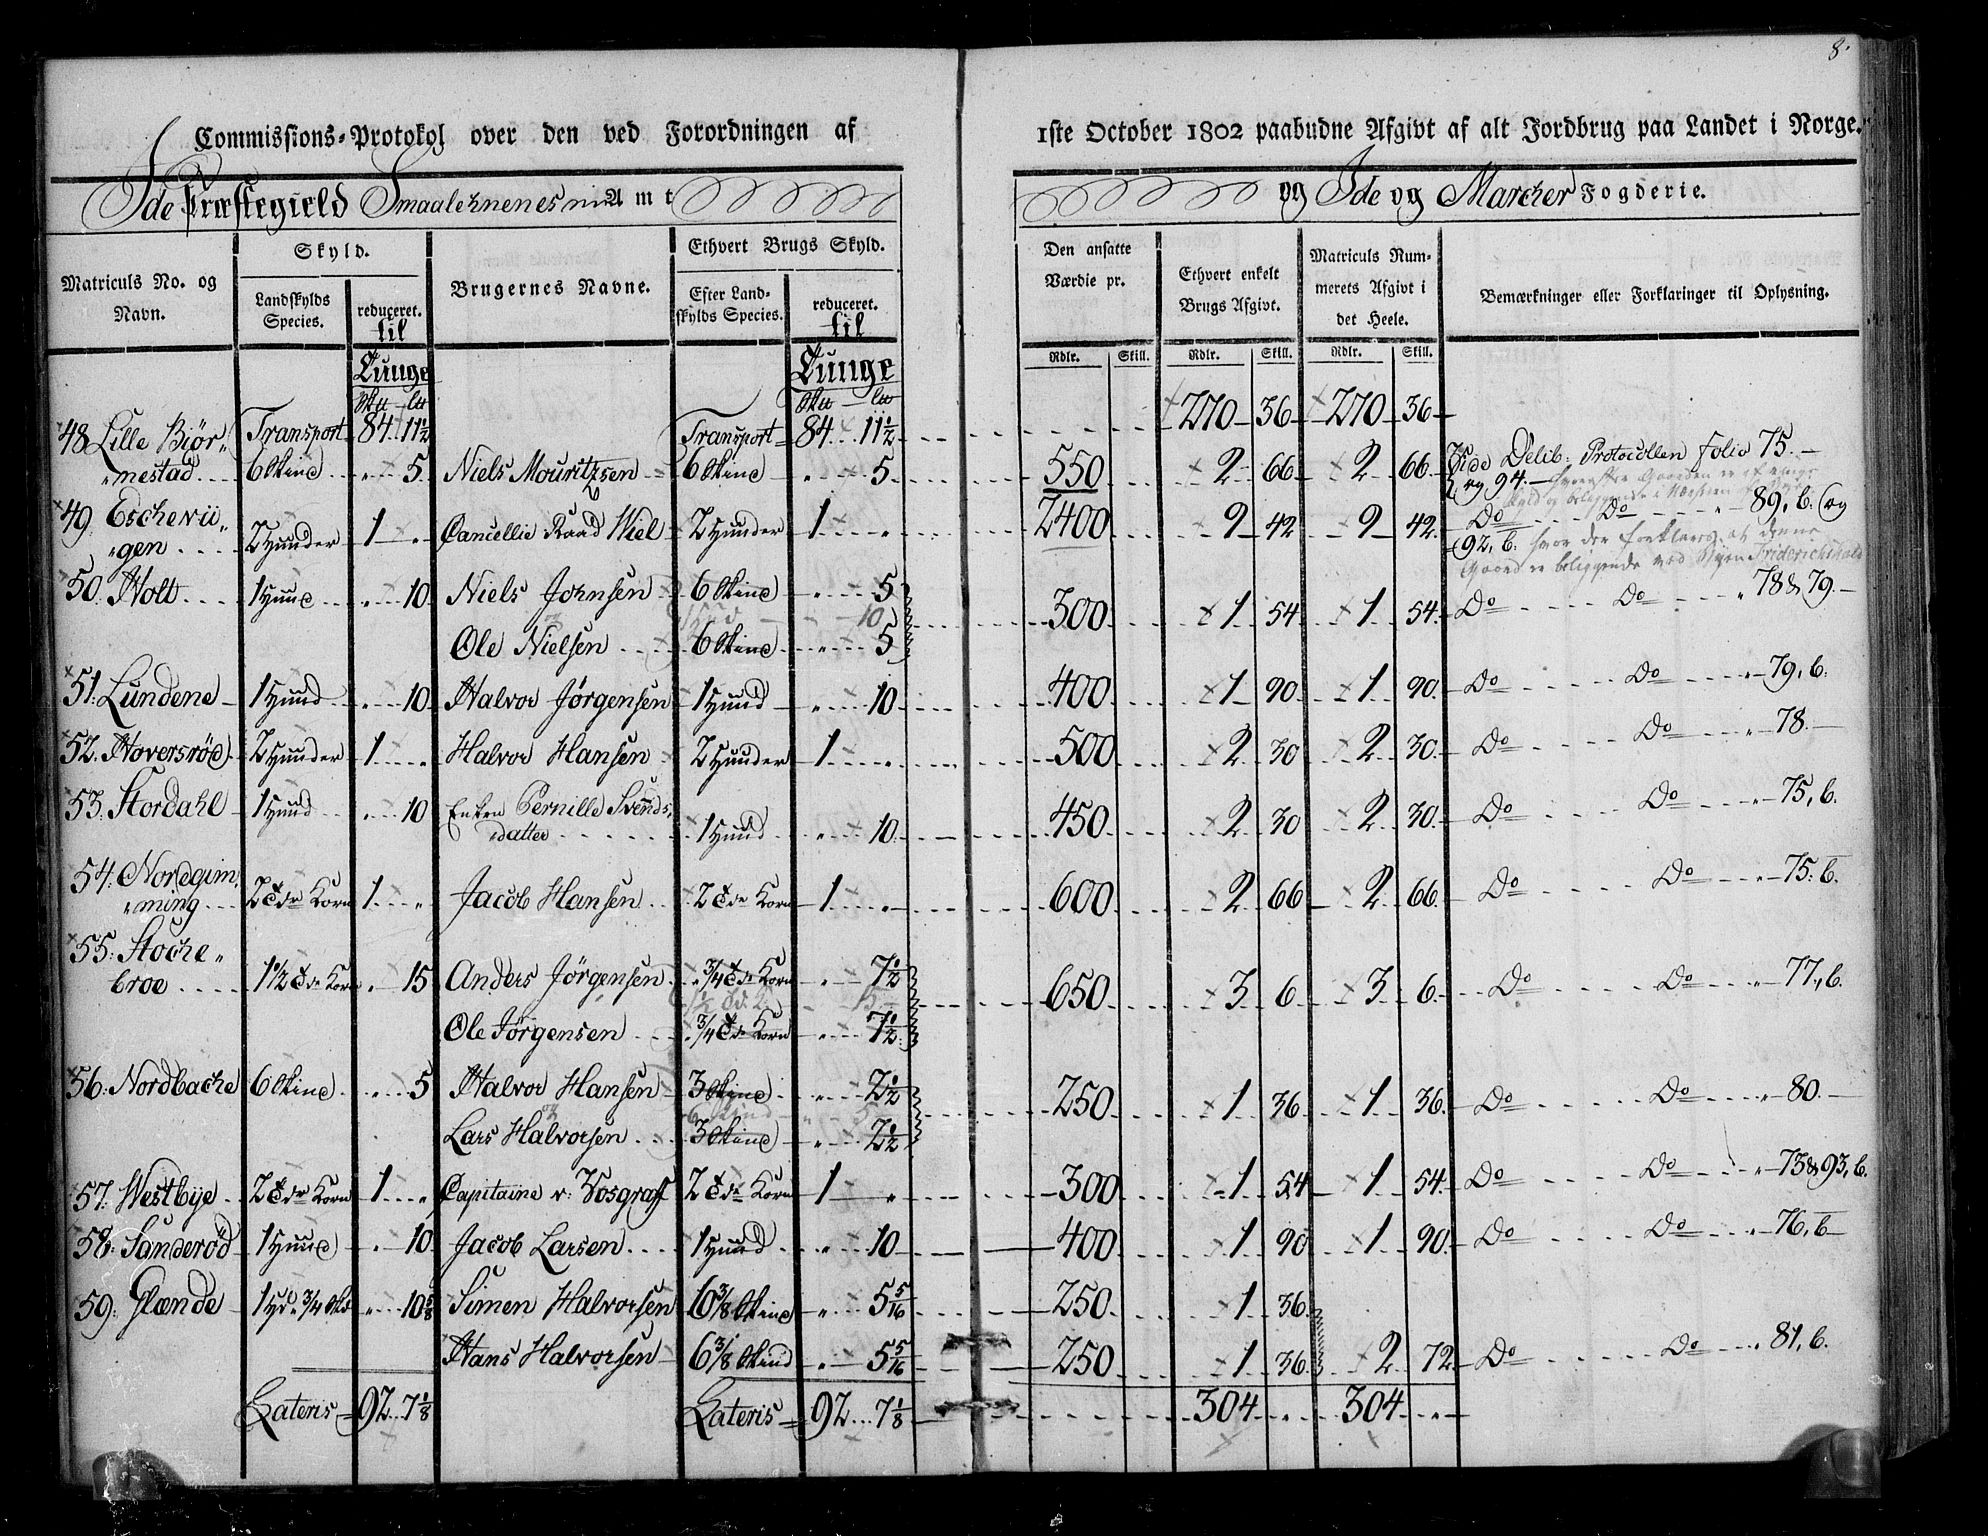 8.
Commissions-Protokol over den ved Forordningen af 1ste October 1802 paabudne Afgivt af alt Jordbrug paa Landet i Norge.
Ide Præstegield Smaalehnenes Amt og Ide og Marcher Fogderie.
Matriculs No. og Navn.
Skyld.
Landskylds Species.
reduceret. til Tunge
Brugernes Navne.
Ethvert Brugs Skyld.
Efter Landskylds Species.
reduceret. til Tunge
Den ansatte Værdie pr.
Ethvert enkelt Brugs Afgivt.
Matriculs Nummerets Afgivt i det Heele.
Bemærkninger eller Forklaringer til Oplysning.
Rdlr. Skill. Rdlr. Skill. Rdlr. Skill.
Transport 84 11½ Transport 84 11½ 270 36 270 36
48 Lille Biørnestad 6 Skind 5 Niels Mouritzsen 6 Skind 5 550 2 66 2 66 Vide Delib: Protocollen folio 75. og 94.
49. Eschevigen 2 Hunder 1 Cancellie Raad Wiel 2 Hunder 1 2400 9 42 9 42 Do Do 89, b. og 92, b. hvor der forklares at denne Gaard er beliggende ved Byen Friderichshald
50. Holt 1 Hund 10 Niels Johnsen 6 Skind 5 300 1 54 1 54 Do Do 78 & 79.
10
Ole Nielsen 6 Skind 5
51. Lundene 1 Hund 10 Halvor Jørgensen 1 Hund 10 400 1 90 1 90 Do Do 79, b.
52. Hoversrød 2 Hunder 1 Halvor Hansen 2 Hunder 1 500 2 30 2 30 Do Do 78.
53. Stordahl 1 Hund 10 Enken Pernille Svendsdatter 1 Hund 10 450 2 30 2 30 Do Do 75, b.
54. Nordgimming 2 Tdr Korn 1 Jacob Hansen 2 Tdr Korn 1 600 2 66 2 66 Do Do 75. b.
55. Stochebroe 1½ Tdr Korn 15 Anders Jørgensen ¾ Tdr Korn 7½ 650 3 6 3 6 Do Do 77, b.
15
Ole Jørgensen ¾ Tdr Korn 7½
56. Nordbache 6 Skind 5 Halvor Hansen 3 Skind 2½ 250 1 36 1 36 Do Do 80.
6 Skind 5
Lars Halvorsen 3 Skind 2½
57. Westbye 2 Tdr Korn 1 Capitaine v: Vosgraff 2 Tdr Korn 1 300 1 54 1 54 Do Do 73 & 93, b.
58. Sanderød 1 Hund 10 Jacob Larsen 1 Hund 10 400 1 90 1 90 Do Do 76, b
59. Glænde 1 Hd ¾ Skd 10⅝ Simen Halvorsen 6⅜ Skind 5 5/16 250 1 36
Hans Halvorsen 6⅜ Skind 5 5/16 250 1 36 2 72 Do Do 81, b.
Lateris 92 7⅛ Lateris 92 7⅛ 304 304